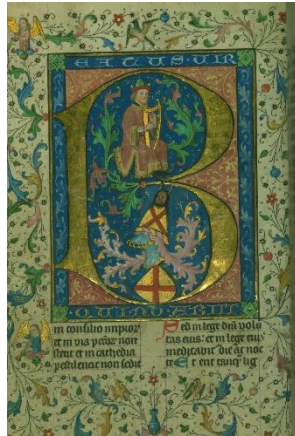 B
EATUS·VIR
QUI NO ABIIT
in consilio impior
et in via pctor non
stetit et in cathedra
pestilencie non sedit
Sed in lege dni volu
tas eius: et in lege eius
meditabit die ac noc
te Et erit tanq lig